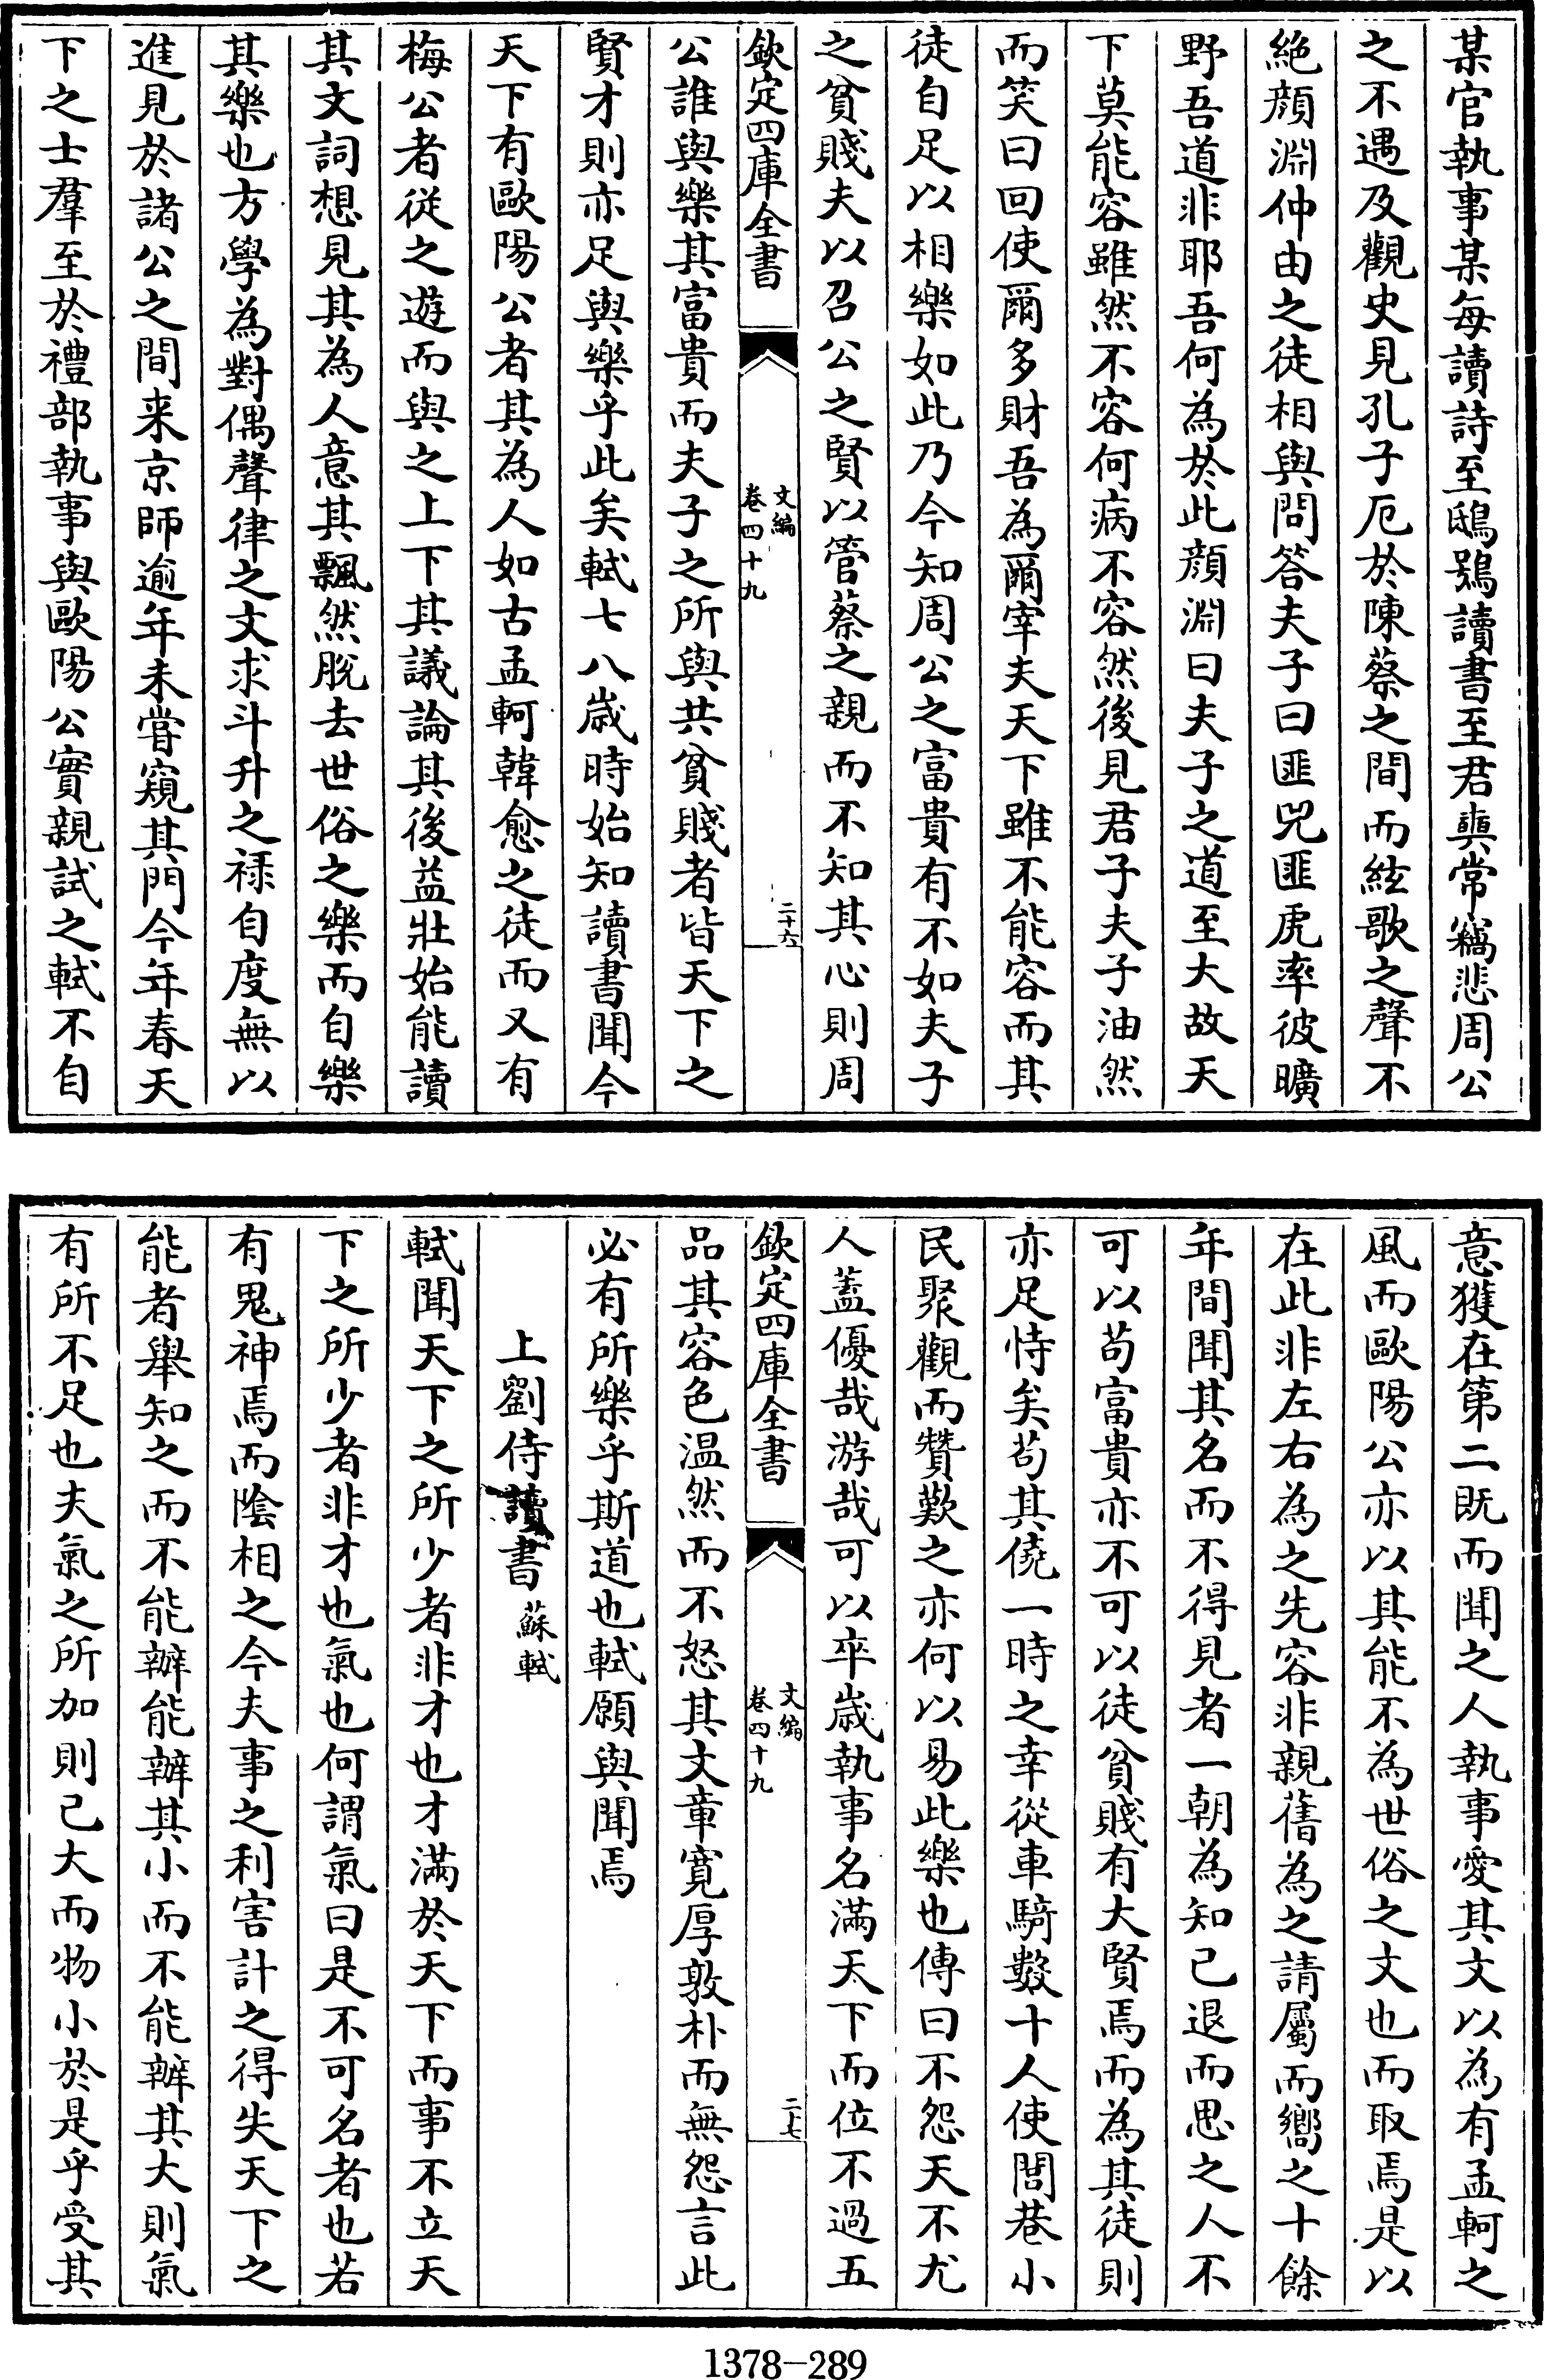 某官執事某每讀詩至鴟鴞讀書至君奭常竊悲周公
之不遇及觀史見孔子厄於陳蔡之間而絃歌之聲不
絶顔淵仲由之徒相與問答夫子曰匪兕匪虎率彼曠
野吾道非耶吾何為於此顔淵曰夫子之道至大故天
下莫能容雖然不容何病不容然後見君子夫子油然
而笑曰回使爾多財吾為爾宰夫天下雖不能容而其
徒自足以相樂如此乃今知周公之富貴有不如夫子
之貧賤夫以召公之賢以管蔡之親而不知其心則周
欽定四庫全書
文編
卷四十九
二十六
公誰與樂其富貴而夫子之所與共貧賤者皆天下之
賢才則亦足與樂乎此矣軾七八歲時始知讀書聞今
天下有歐陽公者其為人如古孟軻韓愈之徒而又有
梅公者從之遊而與之上下其議論其後益壯始能讀
其文詞想見其為人意其飄然脫去世俗之樂而自樂
其樂也方學為對偶聲律之文求斗升之禄自度無以
進見於諸公之間来京師逾年未嘗窺其門今年春天
下之士羣至於禮部執事與歐陽公實親試之軾不自
意獲在第二既而聞之人執事愛其文以為有孟軻之
風而歐陽公亦以其能不為世俗之文也而取焉是以
在此非左右為之先容非親舊為之請屬而嚮之十餘
年間聞其名而不得見者一朝為知已退而思之人不
可以苟富貴亦不可以徒貧賤有大賢焉而為其徒則
亦足恃矣苟其僥一時之幸從車騎數十人使閭巷小
民聚觀而贊歎之亦何以易此樂也傳曰不怨天不尤
人蓋優哉游哉可以卒歲執事名滿天下而位不過五
欽定四庫全書
文編
卷四十九
二七
品其容色温然而不怒其文章寛厚敦朴而無怨言此
必有所樂乎斯道也軾願與聞焉
上劉侍讀書 蘇軾
軾聞天下之所少者非才也才滿於天下而事不立天
下之所少者非才也氣也何謂氣曰是不可名者也若
有鬼神焉而陰相之今夫事之利害計之得失天下之
能者舉知之而不能辦能辦其小而不能辦其大則氣
有所不足也夫氣之所加則己大而物小於是乎受其
1378-289